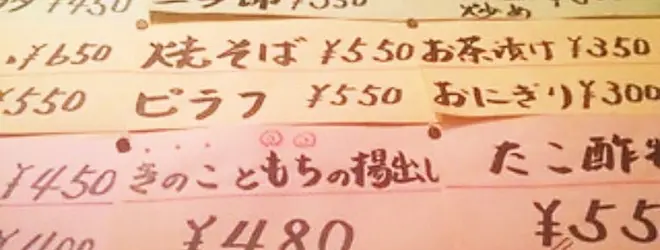 ¥450
炒め
¥650 焼そば ¥550 お茶漬け ¥350
¥550 ピラフ ¥550 おにぎり ¥300
¥450 きのこともちの揚出し たこ酢
¥480 ¥55